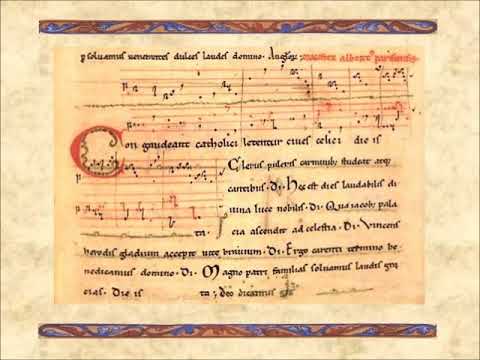 p soluamus venerentes dulces laudes domino. Auctor: magister albertꝰ parisiensis
Con gaudeant catholici letentur ciues celici die is
Clerus pulcris carminibꝰ studeat atq
cantibus. Di. Hec est dies laudabilis di
uina luce nobilis. Di. Qua iacobꝰ pala
ta cia ascendit ad celestia. Di. Vincens
herodis gladium accepit uite brauium. Di. Ergo carenti termino be
nedicamus domino. Di. Magno patri familias soluamus laudis gra
cias. Die is ta; Deo dicamus